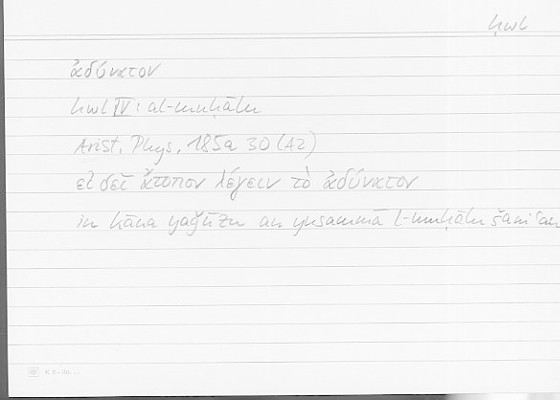 ḥwl
ἀδύνατον
ḥwl IV: al-muḥālu
Arist. Phys. 185a 30 (A2)
εἰ δεῖ ἄτοπον λέγειν τὸ ἀδύνατον
in kāna yaǧūzu an yusammā l-muḥālu šanīʿan